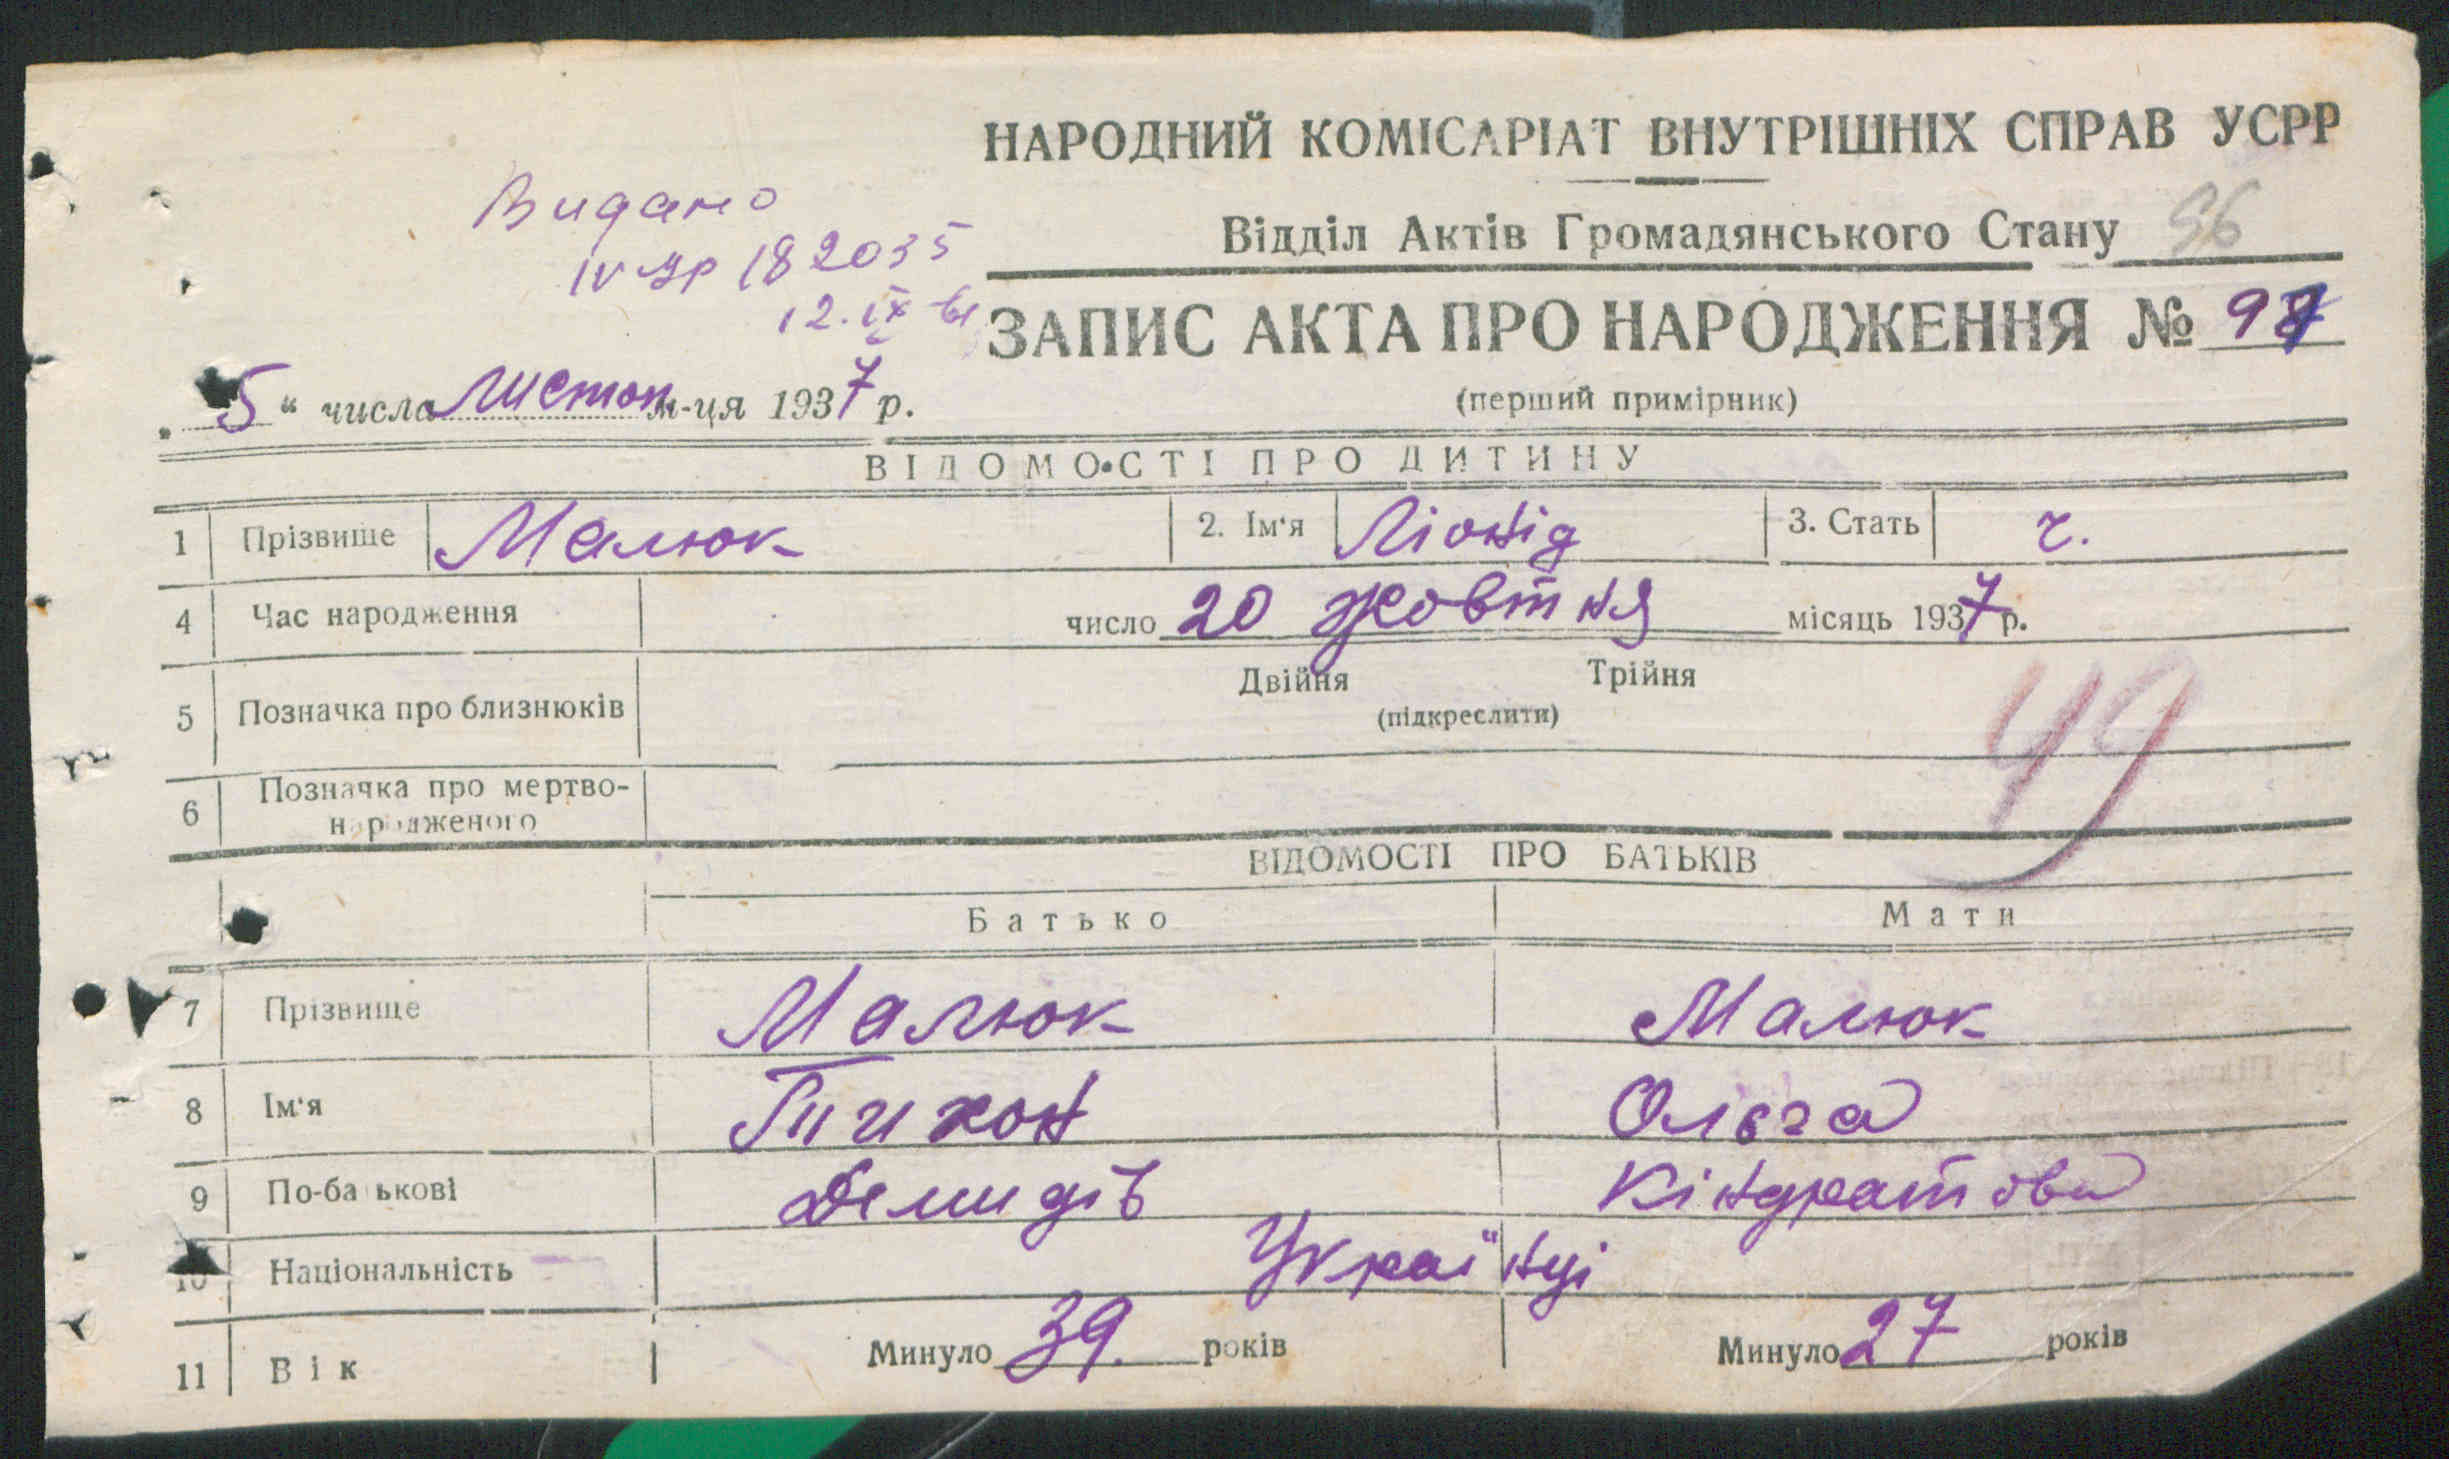 НАРОДНИЙ КОМІСАРІАТ ВНУТРІШНІХ СПРАВ УСРР
Відділ Актів Громадянського Стану 56
Видано
IV УР 182035
12.IX
ЗАПИС АКТА ПРО НАРОДЖЕННЯ № 97
(перший примірник)
„5“ числа листоп м-ця 1937 р.
ВІДОМОСТІ ПРО ДИТИНУ
1 Прізвище Малюк 2. Ім'я Ліонід 3. Стать ч.
4 Час народження число 20 жовтня місяць 1937 р.
5 Позначка про близнюків Двійня Трійня
(підкреслити)
49
6 Позначка про мертво-
народженого
ВІДОМОСТІ ПРО БАТЬКІВ
Батько Мати
7 Прізвище Малюк Малюк
8 Ім'я Тихон Ольга
9 По-батькові Демидів Кіндратова
10 Національність Українці
11 Вік Минуло 39. років Минуло 27 років